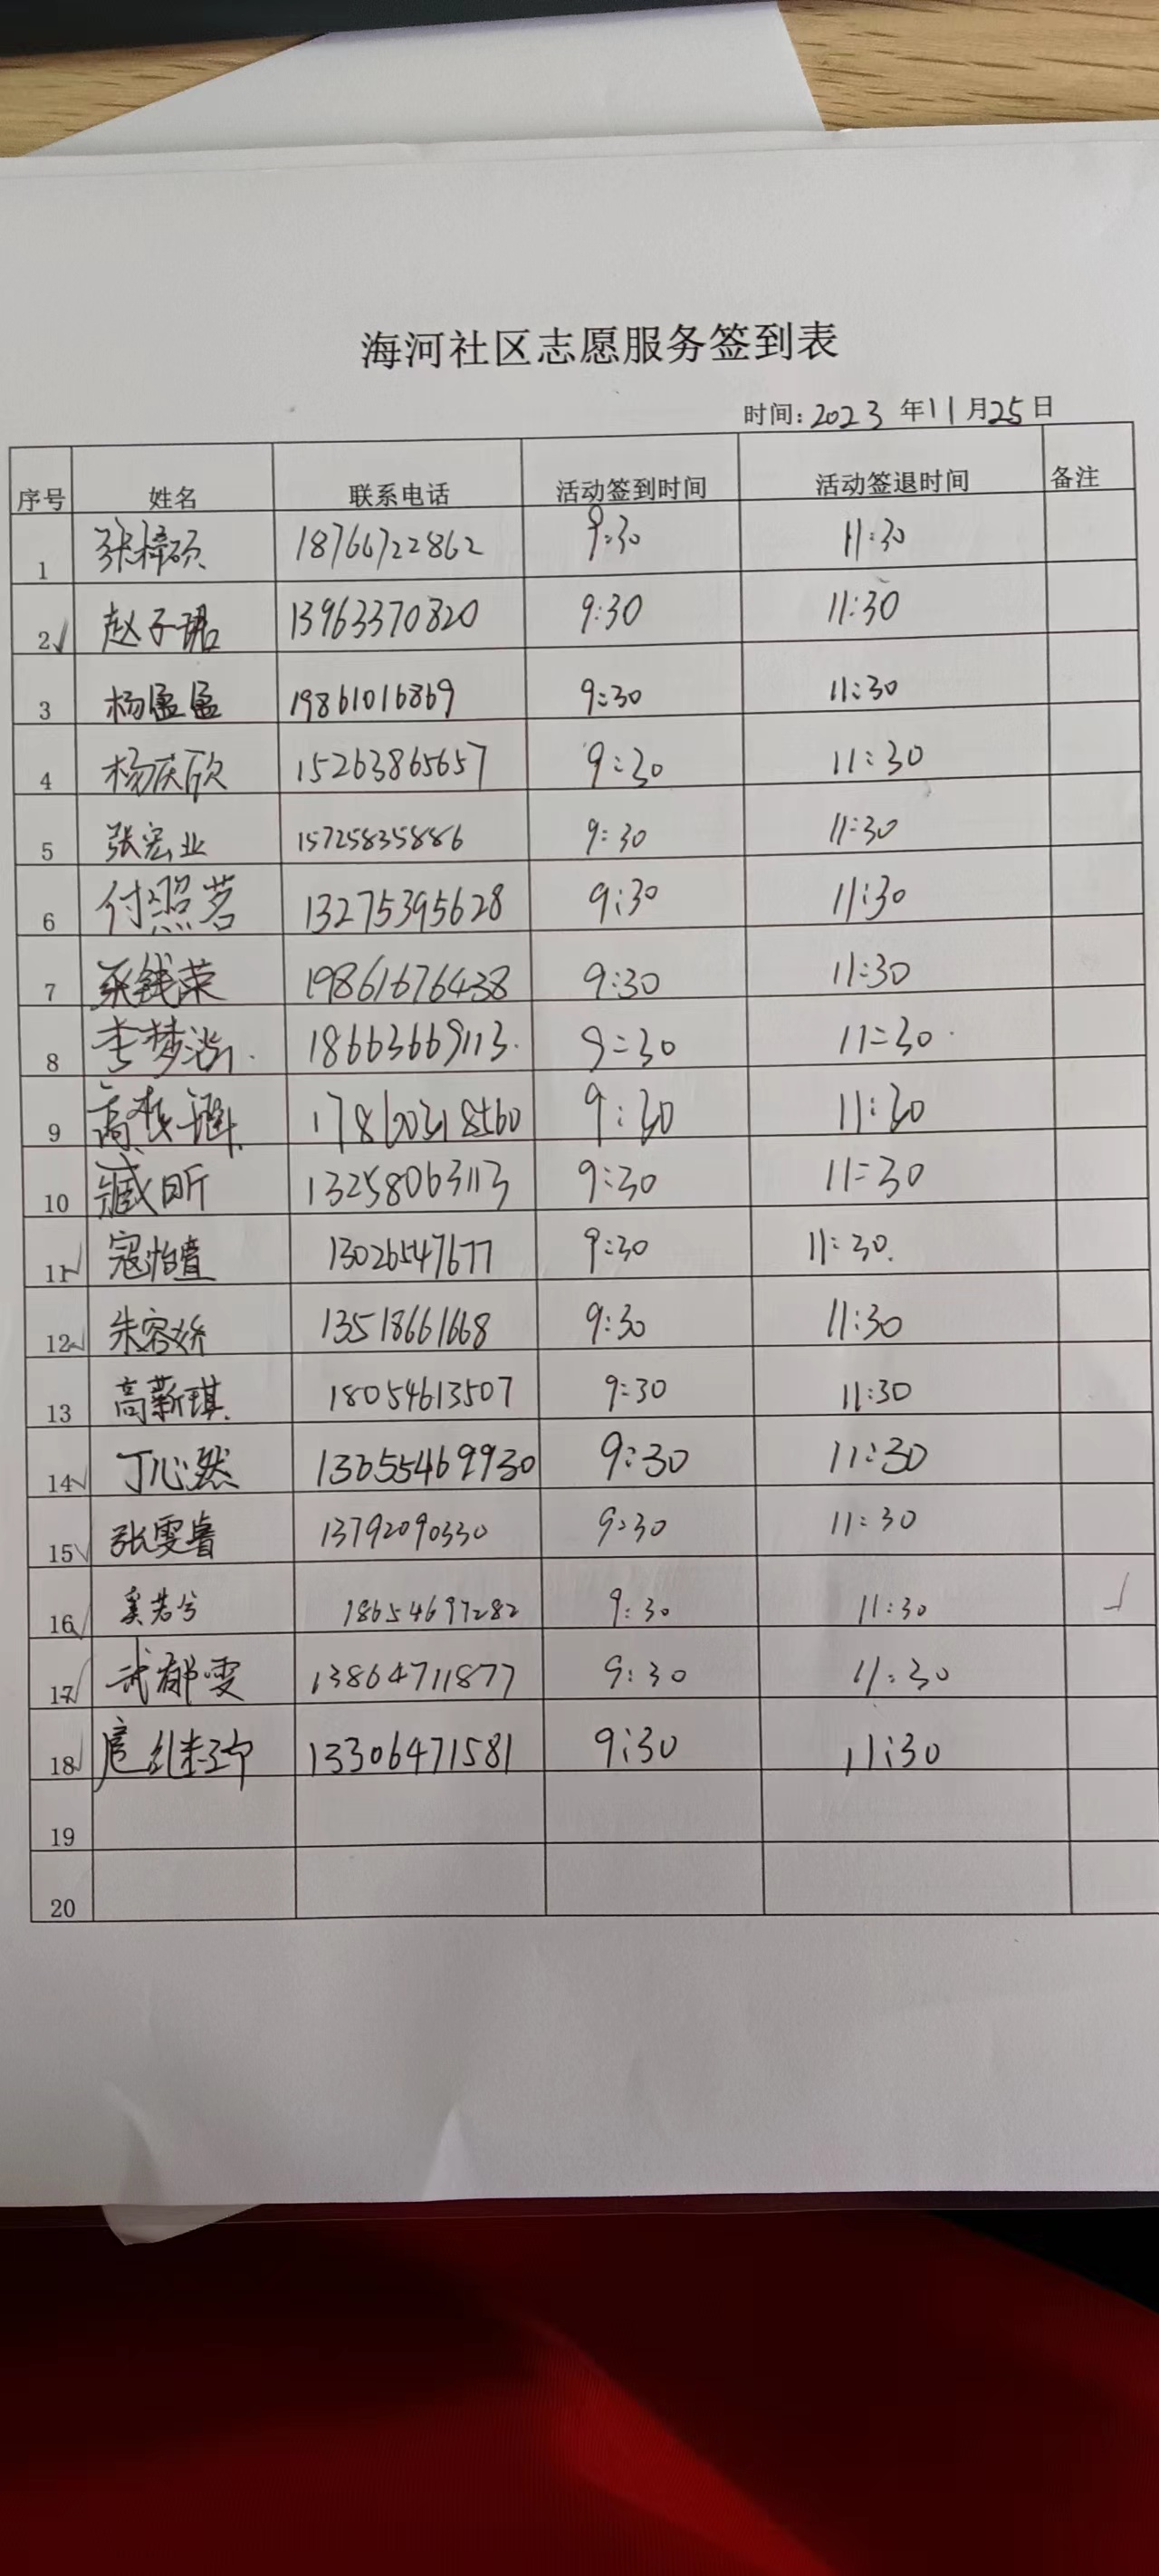 海河社区志愿服务签到表
时间: 2023 年 11 月 25 日
序号 姓名 联系电话 活动签到时间 活动签退时间 备注
1 张樟硕 18766722862 9:30 11:30
2√ 赵子珺 13963370820 9:30 11:30
3 杨盈盈 19861016869 9:30 11:30
4 杨庆欣 15263865657 9:30 11:30
5 张宏业 15725835886 9:30 11:30
6 付照茗 13275395628 9:30 11:30
7 钱荣 19861676438 9:30 11:30
8 李梦 18663669113 9:30 11:30
9 高 9:30 11:30
10 臧昕 13258063113 9:30 11:30
11√ 寇怡萱 13026547677 9:30 11:30
12√ 朱容娇 13518661668 9:30 11:30
13 高新琪 18054613507 9:30 11:30
14√ 丁心然 13655469930 9:30 11:30
15√ 张雯睿 13792090330 9:30 11:30
16√ 奚若兮 18654697282 9:30 11:30 √
17√ 武郁雯 13864711877 9:30 11:30
18√ 13306471581 9:30 11:30
19
20